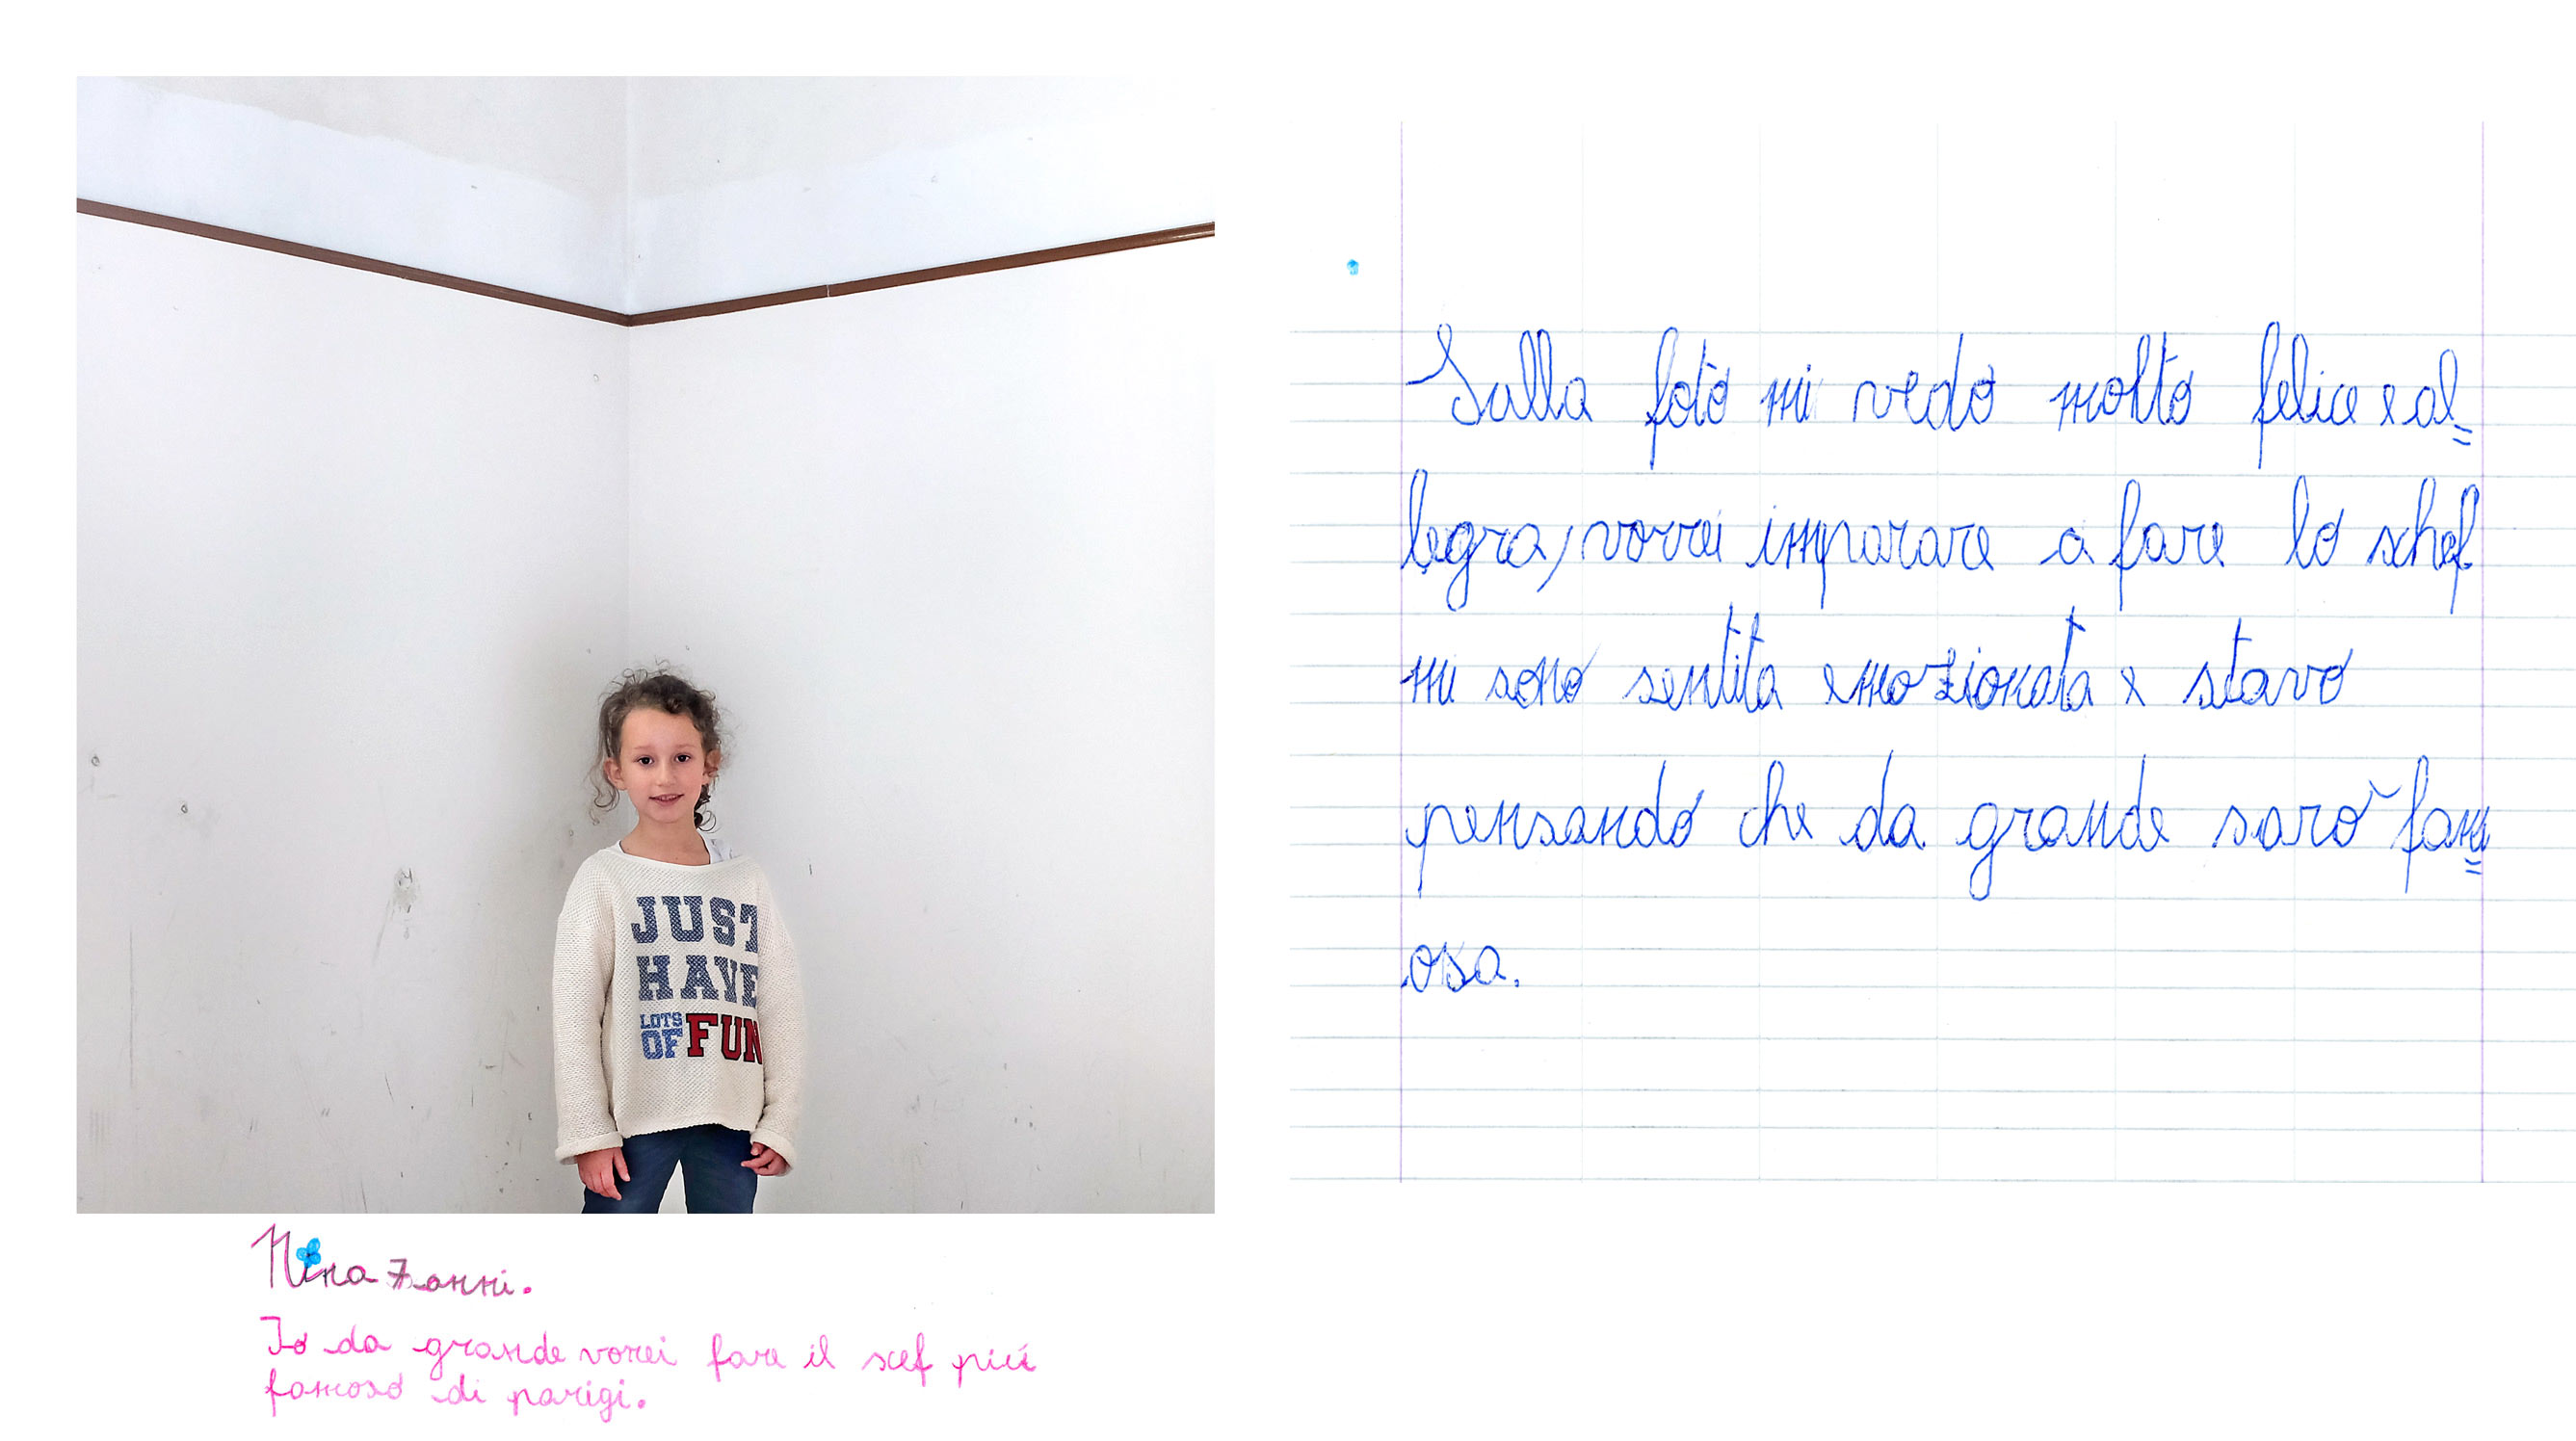 JUST
HAVE
LOTS
OF FUN
Nina Zanni.
Io da grande vorrei fare il scef piú
famoso di parigi.
Sulla foto mi vedo molto felice e al=
legra, vorrei imparare a fare lo schef
mi sono sentita emozionata e stavo
pensando che da grande sarò fam=
osa.